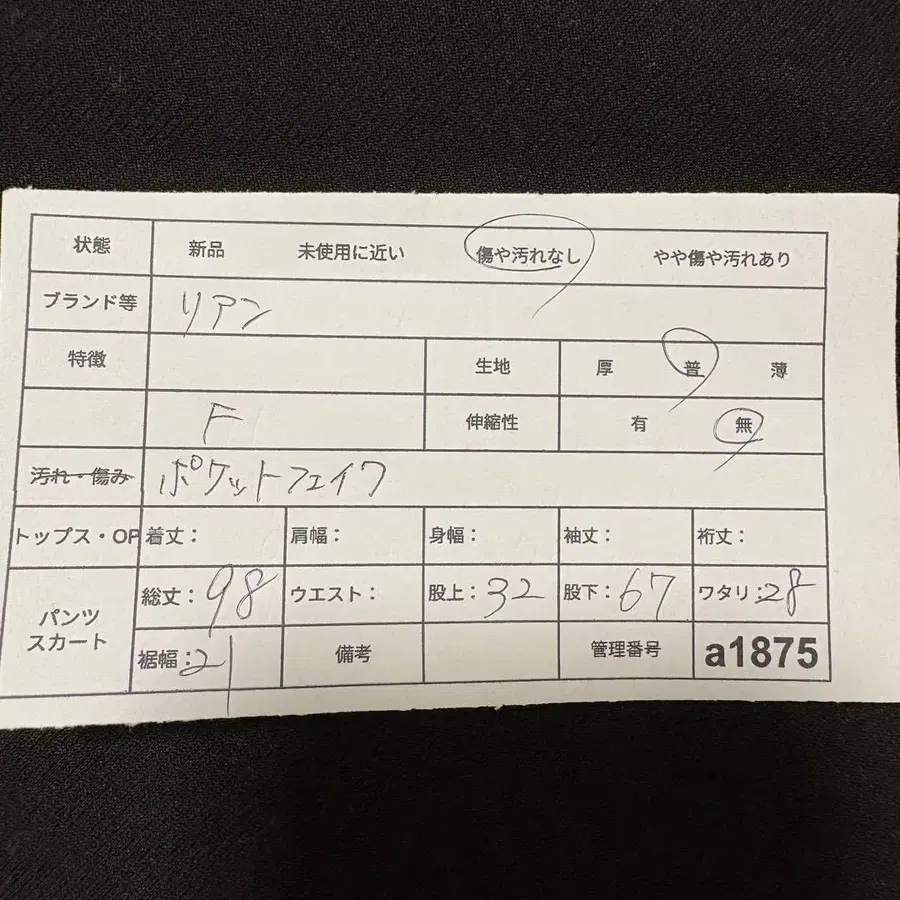 状態 新品 未使用に近い 傷や汚れなし やや傷や汚れあり
ブランド等 リアン
特徴 生地 厚 普 薄
F 伸縮性 有 無
汚れ・傷み ポケットフェイク
トップス・OP 着丈： 肩幅： 身幅： 袖丈： 裄丈：
パンツ スカート 総丈：98 ウエスト： 股上：32 股下：67 ワタリ：28
裾幅：21 備考 管理番号 a1875